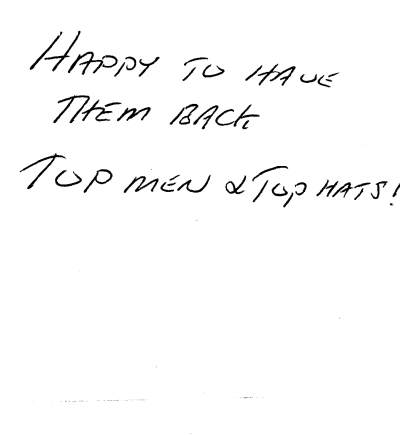 HAPPY TO HAVE
THEM BACK
TOP MEN & TOP HATS!